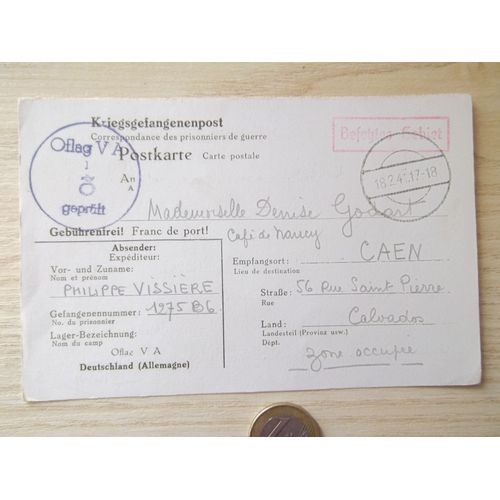 Kriegsgefangenenpost
Correspondance des prisonniers de guerre
Postkarte Carte postale
Oflag V A
1
geprüft
Besetztes Gebiet
18.2.4 .17-18
An
A
Mademoiselle Denise Godart
Café de Nancy
Gebührenfrei! Franc de port!
Absender:
Expéditeur:
Vor- und Zuname:
Nom et prénom
PHILIPPE VISSIÈRE
Gefangenennummer: 1275 B6
No. du prisonnier
Lager-Bezeichnung:
Nom du camp
Oflag V A
Deutschland (Allemagne)
Empfangsort: CAEN
Lieu de destination
Straße: 56 Rue Saint Pierre
Rue
Land: Calvados
Landesteil (Provinz usw.)
Dépt.
zone occupée